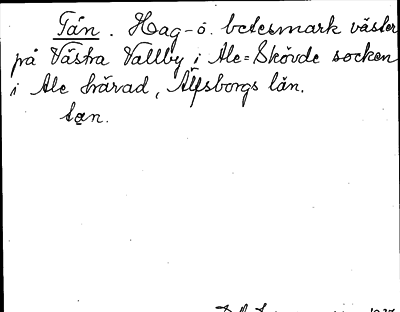 Tån. Hag- o. betesmark väster
på Västra Vallby i Ale-Skövde socken
i Ale härad, Älfsborgs län.
tąn.